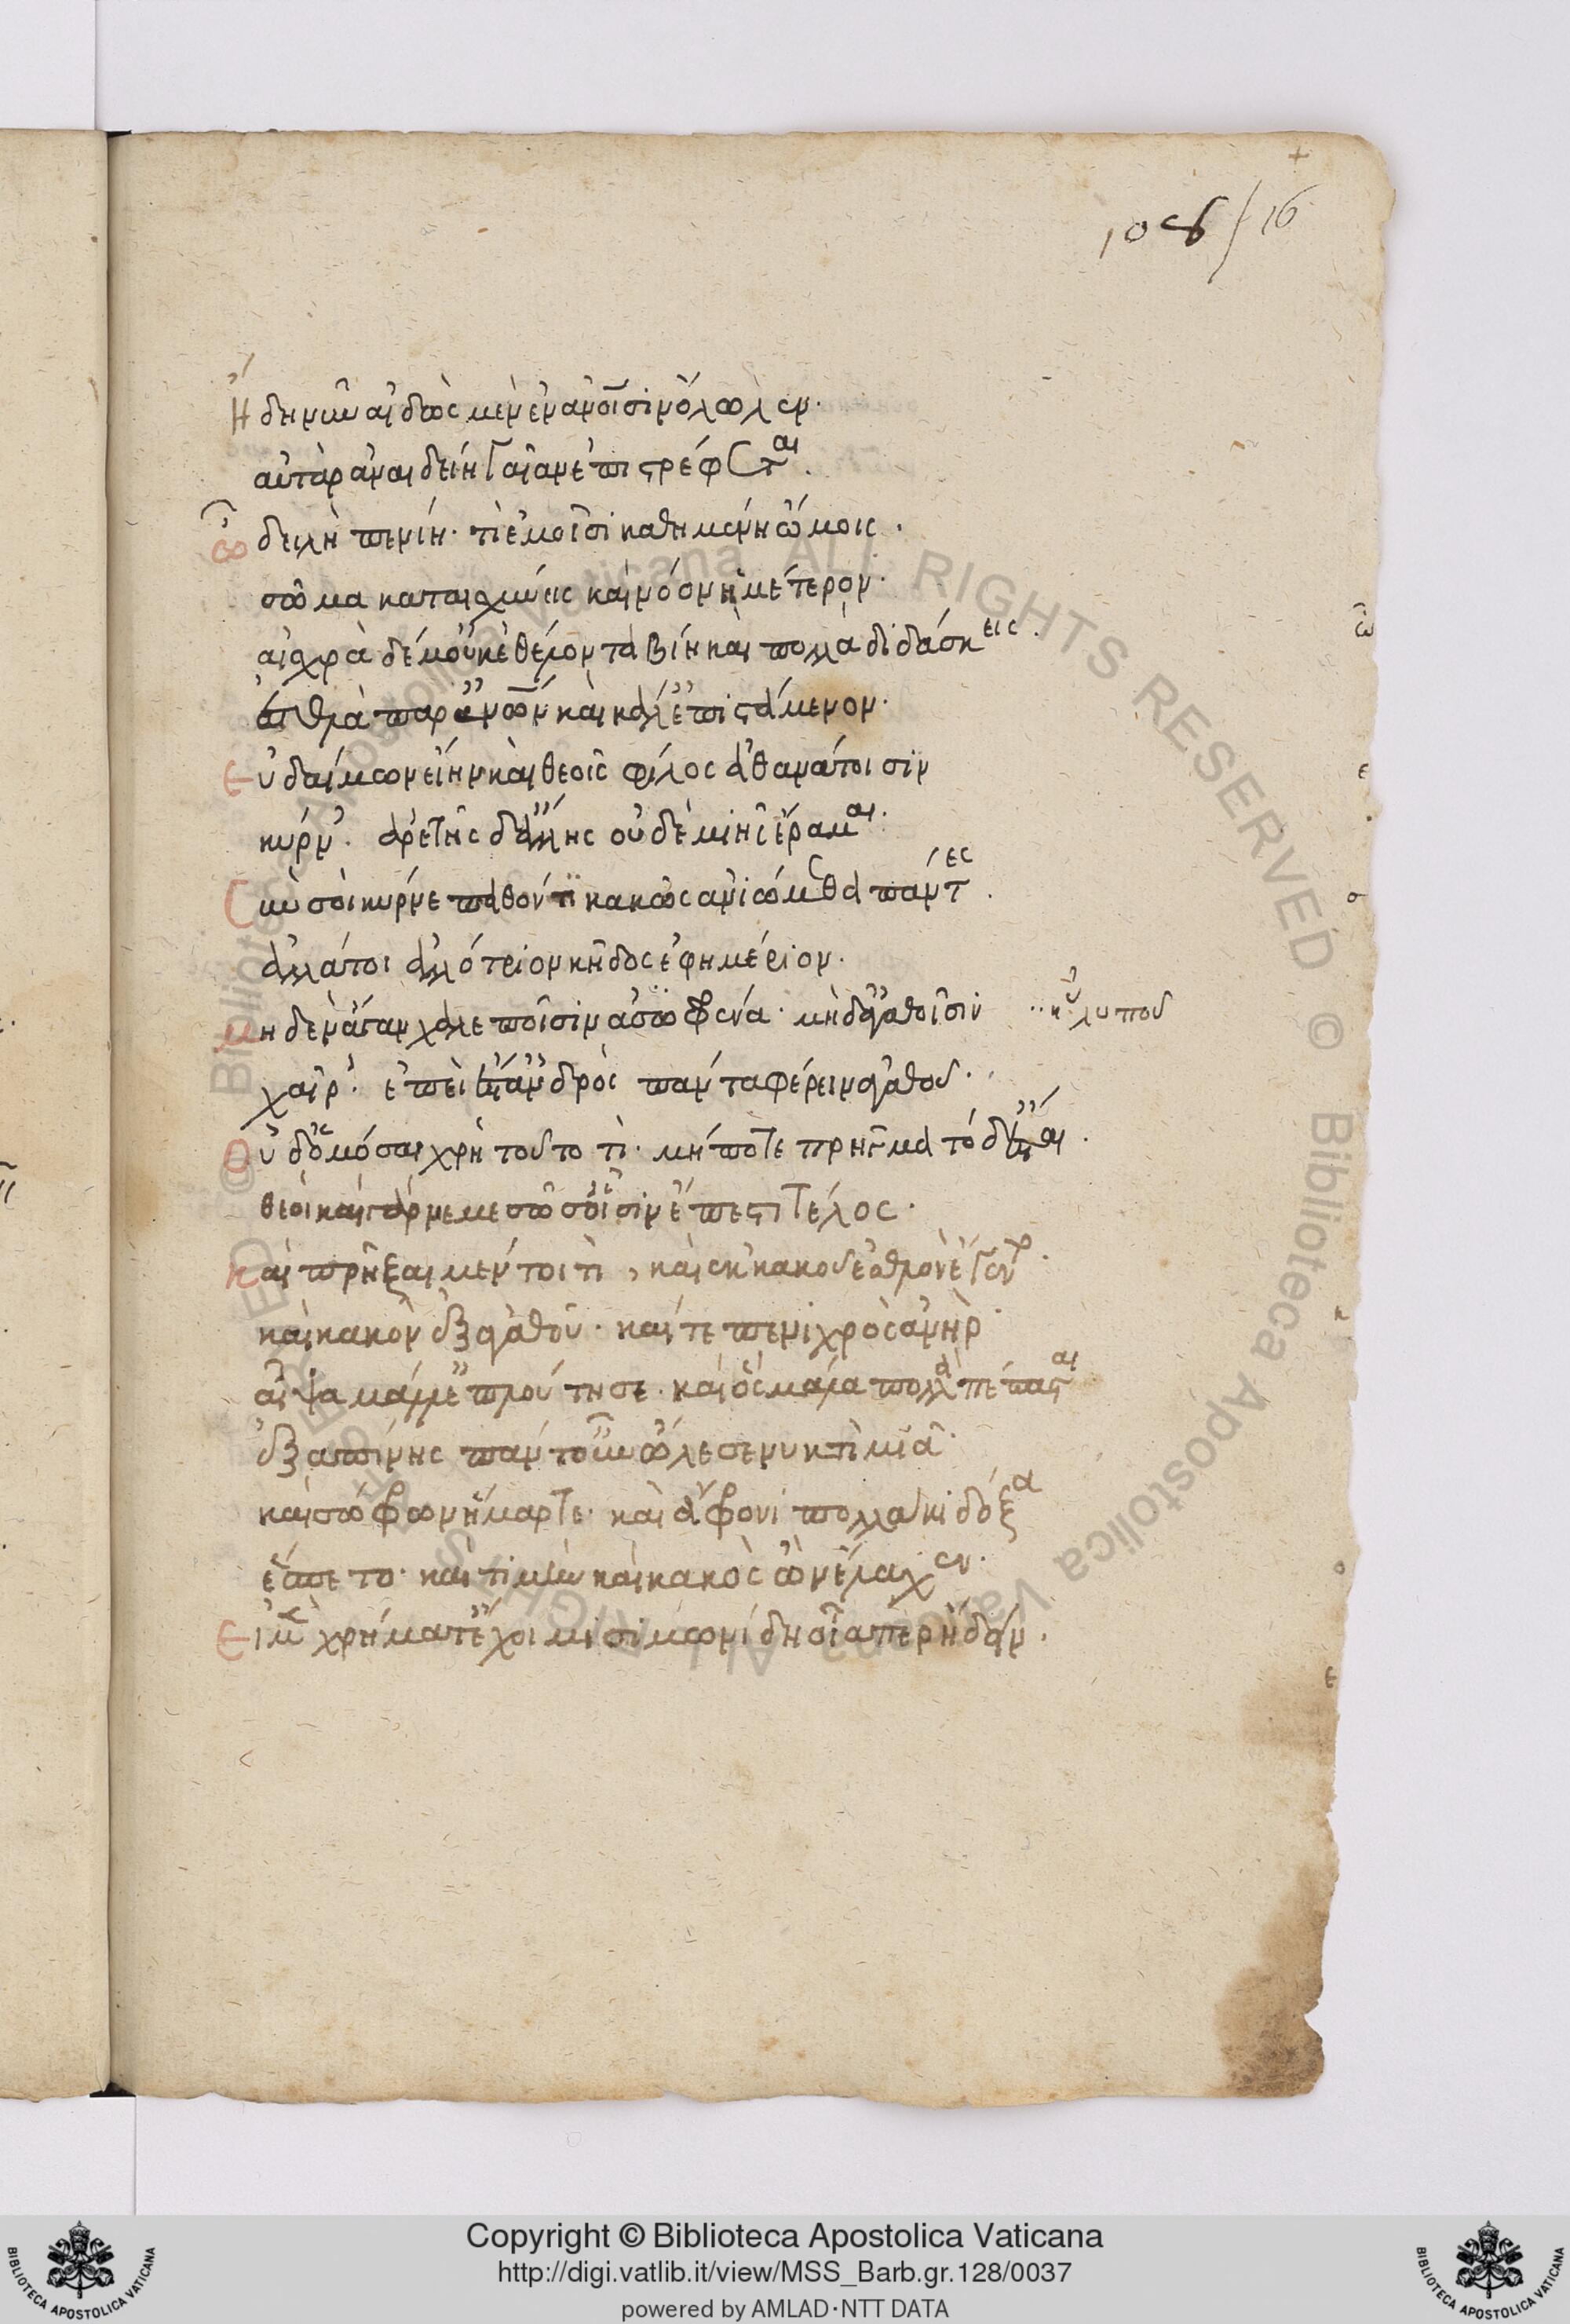 108/16
Ἤδη νῦν αἰδὼς μὲν ἐν ἀνοῖσιν ὄλωλεν·
αὐτὰρ ἀναιδείη γαῖαν ἐπιστρέφεται.
ὦ δειλὴ πενίη· τὶ ἐμοῖσι καθημένη ὤμοις.
σῶμα καταισχύνεις καὶ νόον ἡμέτερον·
αἰσχρὰ δέ μ' οὐκ ἐθέλοντα βίη καὶ πολλὰ διδάσκεις.
ἐσθλὰ παρ' ἀνων καὶ κάλ' ἐπιστάμενον·
Εὐδαίμων εἴην καὶ θεοῖς φίλος ἀθανάτοισιν
κύρν'. ἀρετῆς δ' ἄλλης οὐδὲ μιῆς ἔραμαι.
Σὺν σοὶ κύρνε παθόντι κακῶς ἀνιώμεθα πάντες.
ἀλλά τοι ἀλλότριον κῆδος ἐφημέριον.
Μηδὲν ἄγαν χαλεποῖσιν ἀσῶ φρένα· μὴ δ' ἀγαθοῖσιν
λυποῦ
χαῖρ'. ἐπεὶ ἔστ' ἀνδρὸς πάντα φέρειν ἀγαθοῦ.
Οὐδ' ὀμόσαι χρὴ τοῦτο τὶ· μήποτε πρῆγμα τόδ' ἔσται.
θεοὶ καὶ γάρ νεμεσῶσ' οἷσιν ἔπεστι τέλος.
Καὶ πρῆξαι μέντοι τὶ, καὶ ἐκ κακοῦ ἐσθλὸν ἔγεντο.
καὶ κακὸν ἐξ ἀγαθοῦ· καί τε πενιχρὸς ἀνὴρ
αἶψα μάλ' ἐπλούτησε· καὶ ὃς μάλα πολλὰ πέπασται
ἐξαπίνης πάντ' οὖν ὤλεσε νυκτὶ μιᾶ·
καὶ σώφρων ἥμαρτε· καὶ ἄφρονι πολλάκι δόξα
ἕσπετο· καὶ τιμὴν καὶ κακὸς ὢν ἔλαχεν.
Εἰ μὲν χρήματ' ἔχοιμι σιμωνίδη οἷά περ ἤδη.
Copyright © Biblioteca Apostolica Vaticana
http://digi.vatlib.it/view/MSS_Barb.gr.128/0037
powered by AMLAD·NTT DATA